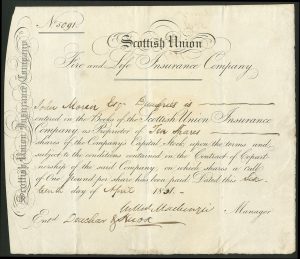 No. 5091.
Scottish Union
Fire and Life Insurance Company.
John Moran Esqr.
entered in the Books of the Scottish Union Insurance
Company as Proprietor of Ten shares
shares of the Company's Capital Stock upon the terms and
subject to the conditions contained in the Contract of Copart-
nership of the said Company, on which shares a call
of One Pound per share has been paid. Dated this
tenth day of April 18
Mackenzie Manager
Entd.
Scottish Union Insurance Company